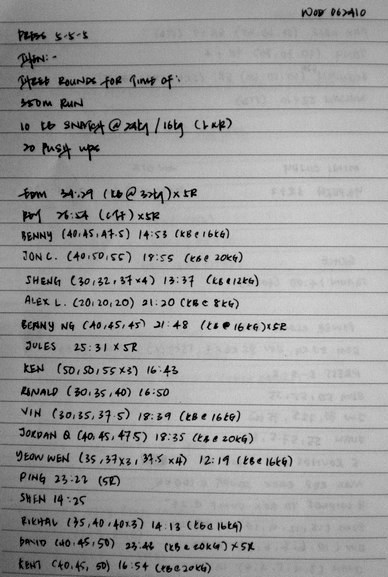 WOD 062410
PRESS 5-5-5
THEN:-
THREE ROUNDS FOR TIME OF:
350M RUN
10 KB SNATCH @ 24kg / 16kg (L&R)
20 PUSH UPS
34:29 (KB @ 32kg) x 5R
26:54 x 5R
BENNY (40,45,47.5) 14:53 (KB @ 16KG)
JON C. (40,50,55) 18:55 (KB @ 20KG)
SHENG (30,32,37x4) 13:37 (KB@12KG)
ALEX L. (20,20,20) 21:20 (KB @ 8KG)
BENNY NG (40,45,45) 21:48 (KB @ 16KG)x5R
JULES 25:31 x 5R
KEN (50,50,55x3) 16:43
RONALD (30,35,40) 16:50
VIN (30,35,37.5) 18:39 (KB@ 16KG)
JORDAN Q (40,45,47.5) 18:35 (KB@ 20KG)
YEOW WEN (35,37x3, 37.5 x4) 12:19 (KB@ 16KG)
PING 23:22 (5R)
SHEN 14:25
(35,40,40x3) 14:13 (KB@ 16KG)
DAVID (40,45,50) 23:43 (KB @ 20KG) x 5R
KENT (40,45,50) 16:54 (KB@ 20KG)